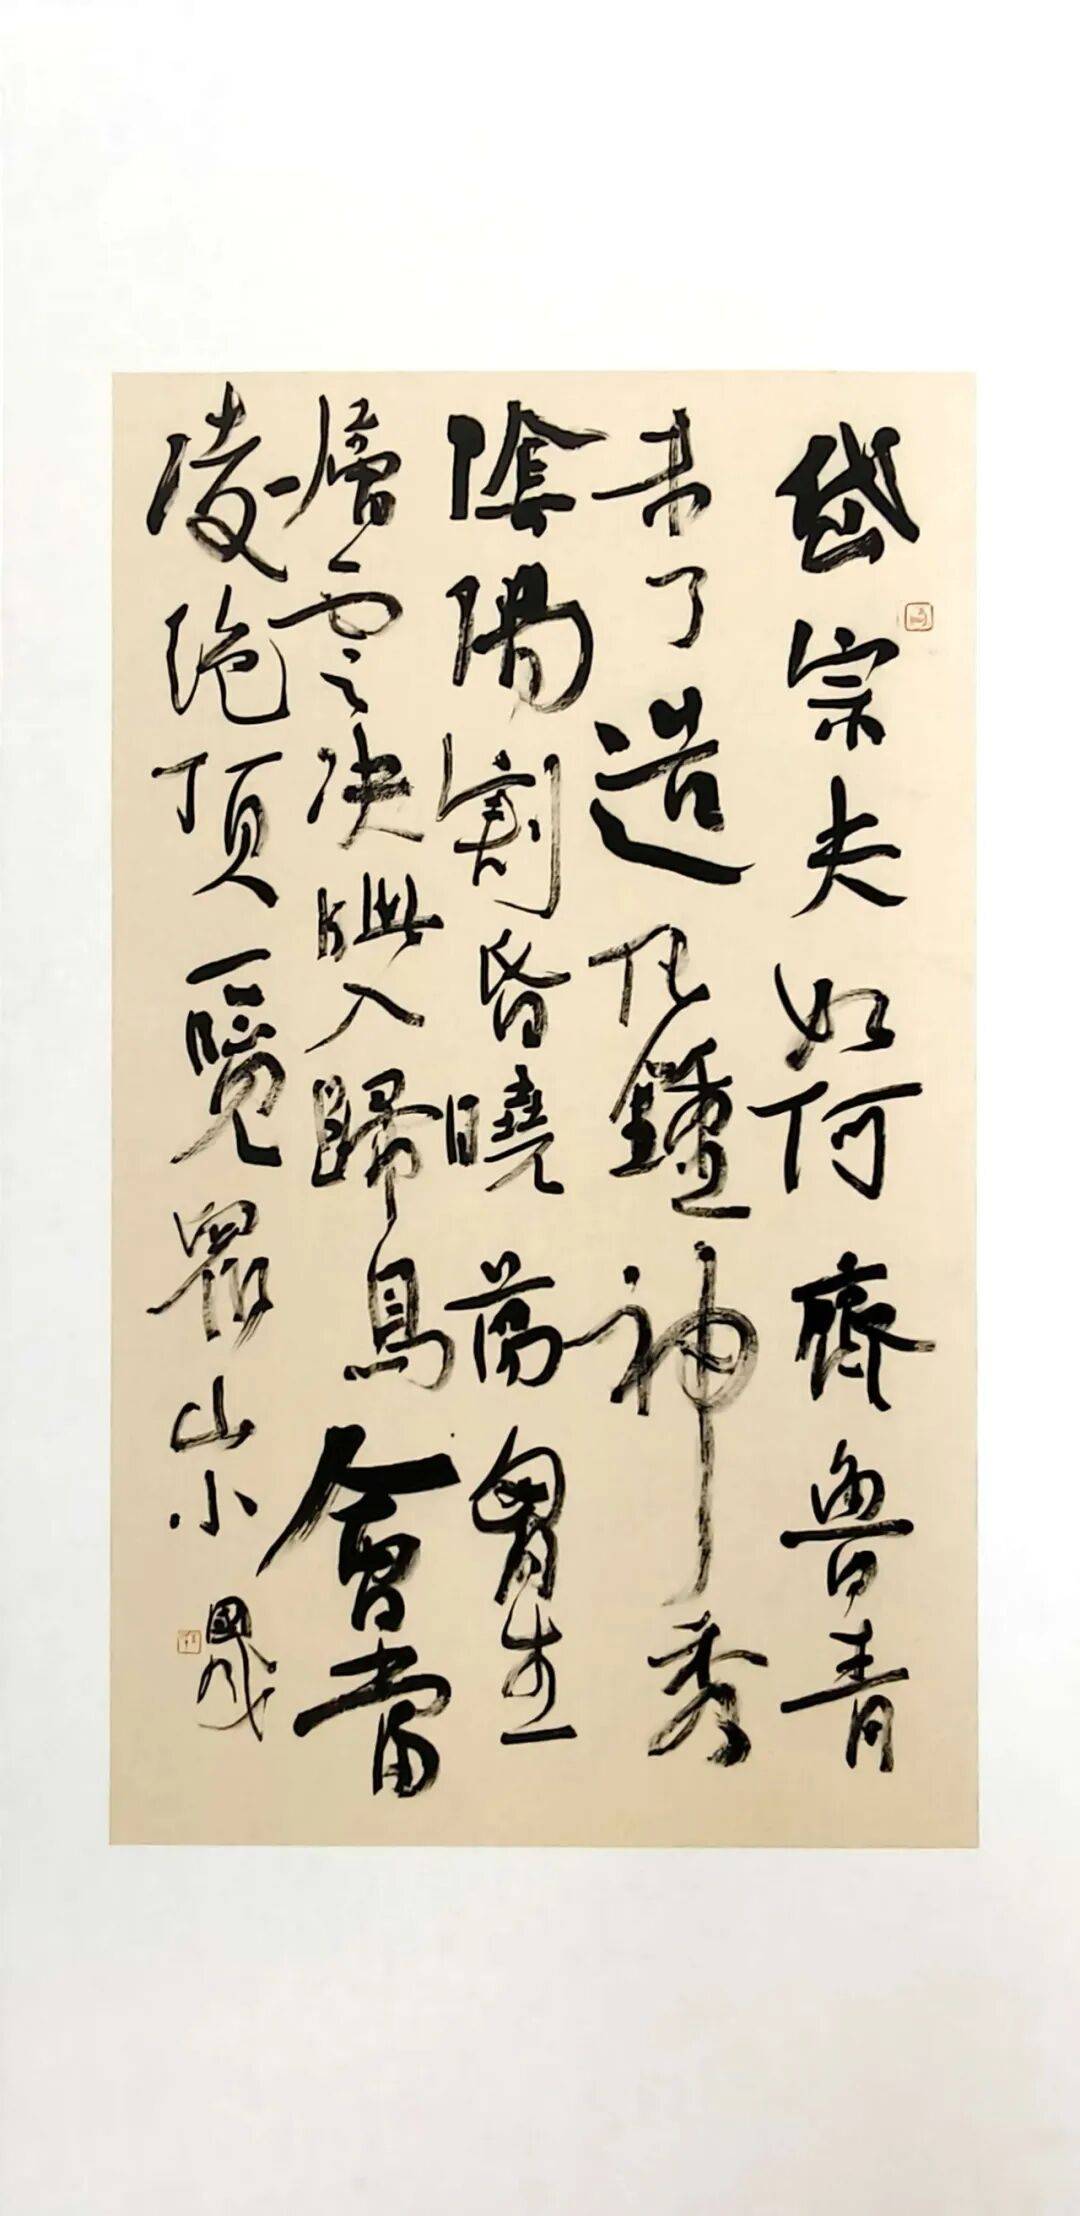 岱宗夫如何齊魯青
未了造化鍾神秀
陰陽割昏曉蕩胷生
層雲決眦入歸鳥會當
凌絕頂一覽眾山小
國